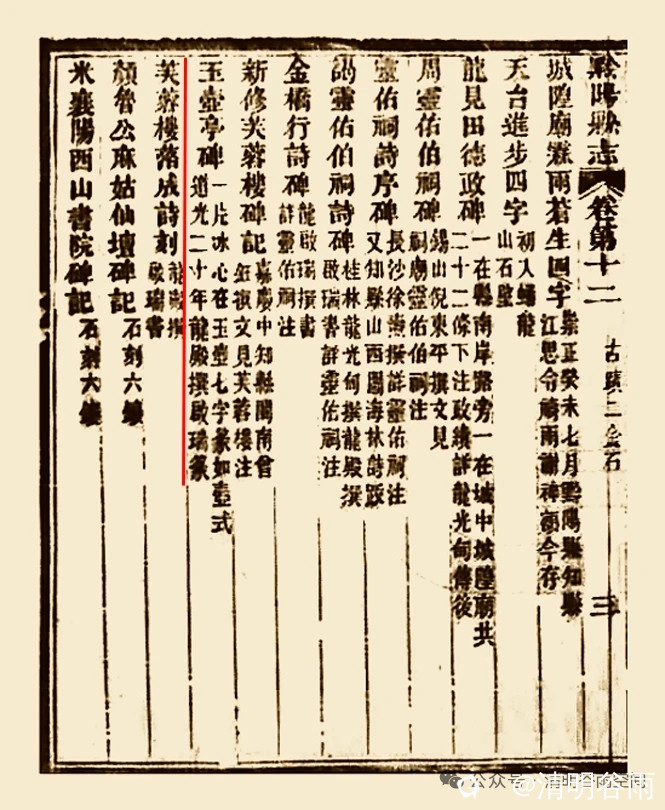 黔陽縣志 卷第十二 古蹟二金石 三
城隍廟霖雨蒼生四字 崇正癸未七月黔陽縣知縣
江思令禱雨謝神額今存
天台進步四字 初入蟠龍
山石壁
龍見田德政碑 一在縣南岸路旁一在城中城隍廟共
二十二條下注政績詳龍光甸傳後
周靈佑伯祠碑 錫山倪東平撰文見
祠廟靈佑伯祠注
靈佑祠詩序碑 長沙徐 撰詳靈佑祠注
又知縣山西閻海林詩跋
謁靈佑伯祠詩碑 桂林龍光甸撰龍殿撰
啟瑞書詳靈佑祠注
金橋行詩碑 龍啟瑞撰書
詳靈佑祠注
新修芙蓉樓碑記 嘉慶中知縣閩南曾
鈺撰文見芙蓉樓注
玉壺亭碑 一片冰心在玉壺七字篆如壺式
道光二十年龍殿撰啟瑞篆
芙蓉樓落成詩刻 龍殿撰
啟瑞書
顏魯公麻姑仙壇碑記 石刻六
米襄陽西山書院碑記 石刻六
公众号·清明谷雨空间
@清明谷雨